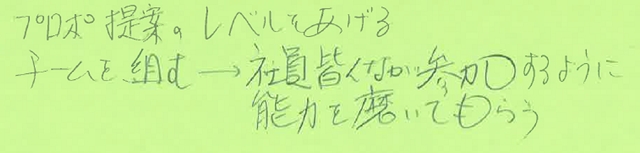 プロポ提案のレベルをあげる
チームを組む→社員皆んなが参加するように
能力を磨いてもらう